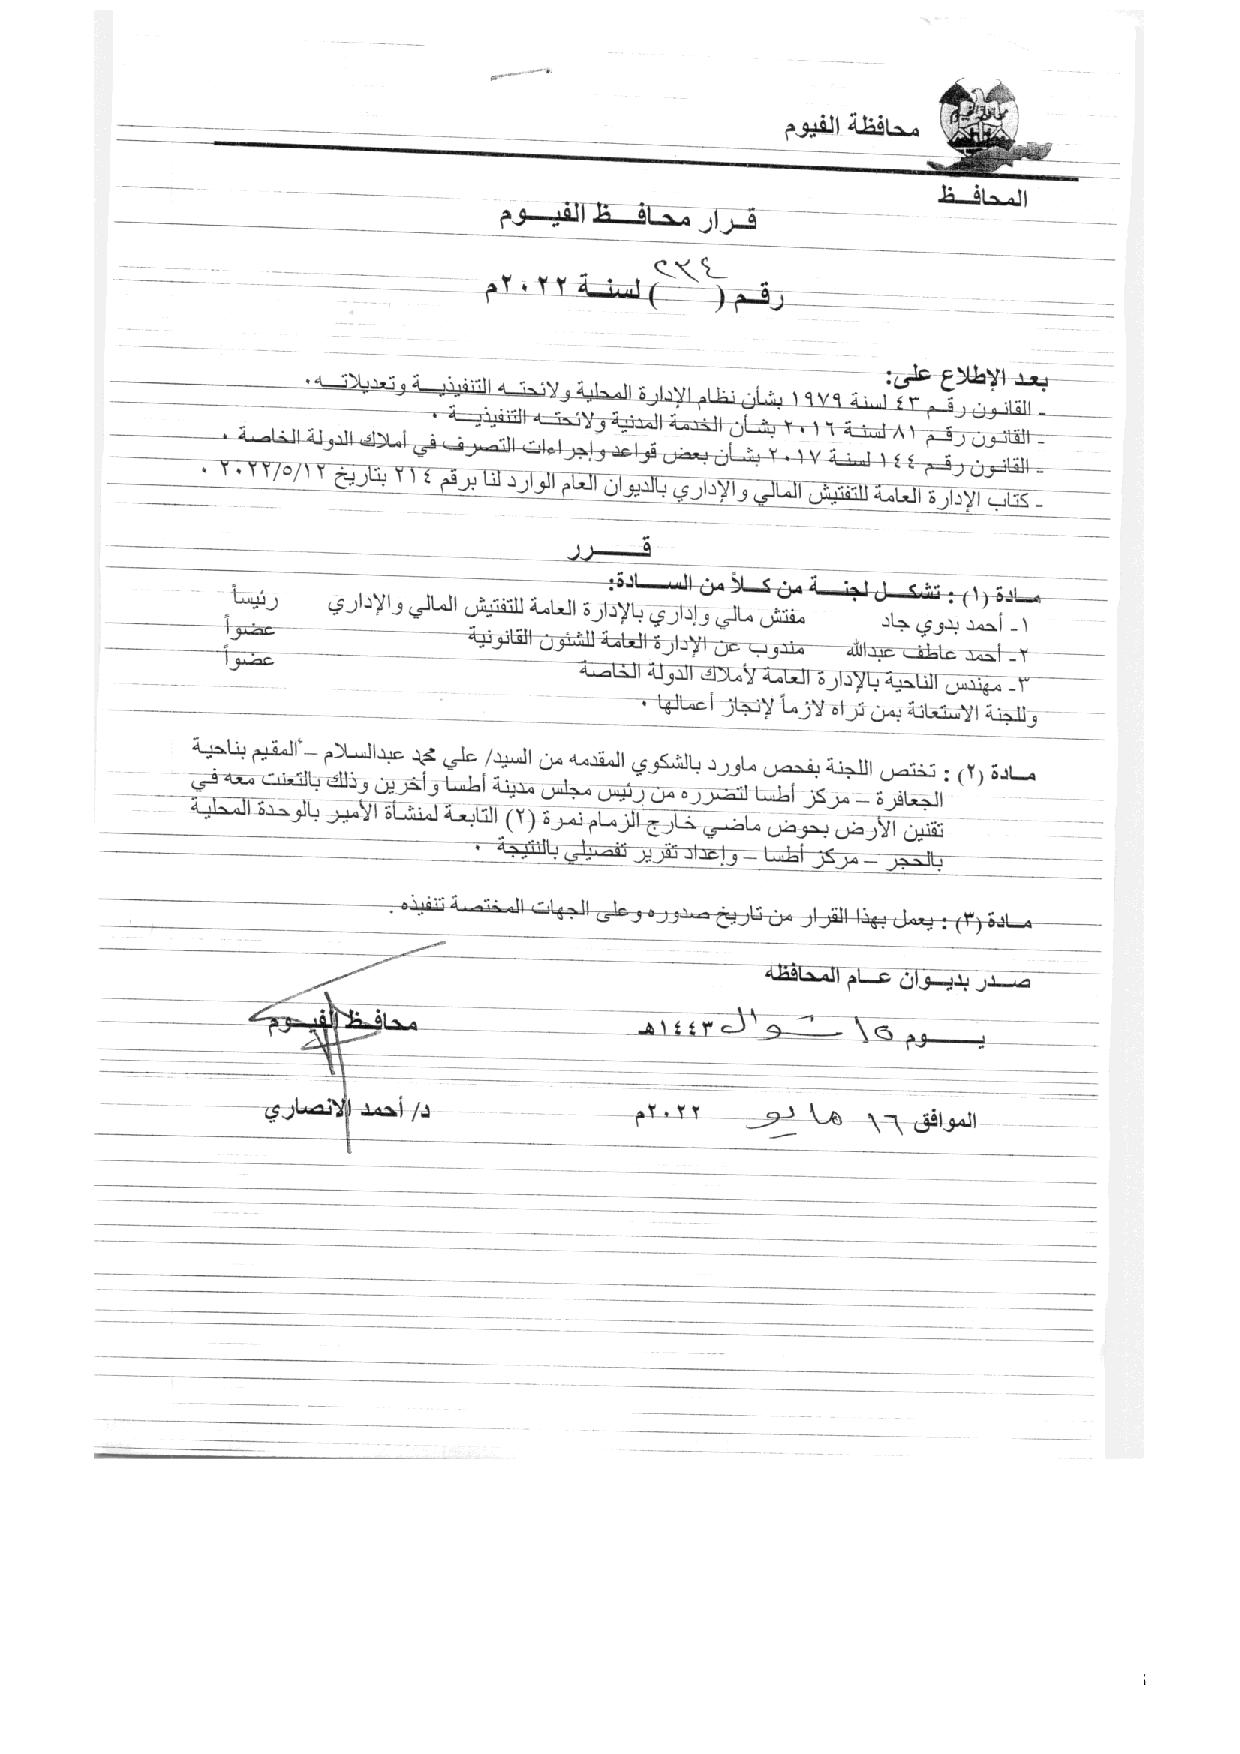 محافظة الفيوم
المحافـــظ
قـرار محافـــظ الفيـــوم
رقـم (٢٣٤) لسنـة ٢٠٢٢م
بعد الإطلاع على:
- القانون رقـم ٤٣ لسنة ١٩٧٩ بشأن نظام الإدارة المحلية ولائحتـه التنفيذيـة وتعديلاتـه.
- القانون رقـم ٨١ لسنة ٢٠١٦ بشأن الخدمة المدنية ولائحتـه التنفيذيـة .
- القانون رقـم ١٤٤ لسنة ٢٠١٧ بشأن بعض قواعد وإجراءات التصرف في أملاك الدولة الخاصة .
- كتاب الإدارة العامة للتفتيش المالي والإداري بالديوان العام الوارد لنا برقم ٢١٤ بتاريخ ٢٠٢٢/٥/١٢ .
قـــرر
مـادة (١) : تشكـل لجنـة من كـلاً من السـادة:
١- أحمد بدوي جاد مفتش مالي وإداري بالإدارة العامة للتفتيش المالي والإداري رئيساً
٢- أحمد عاطف عبدالله مندوب عن الإدارة العامة للشئون القانونية عضواً
٣- مهندس الناحية بالإدارة العامة لأملاك الدولة الخاصة عضواً
وللجنة الاستعانة بمن تراه لازماً لإنجاز أعمالها .
مـادة (٢) : تختص اللجنة بفحص ماورد بالشكوي المقدمه من السيد/ علي محمد عبدالسلام – المقيم بناحية
الجعافرة – مركز أطسا لتضرره من رئيس مجلس مدينة أطسا وأخرين وذلك بالتعنت معه في
تقنين الأرض بحوض ماضي خارج الزمام نمرة (٢) التابعة لمنشأة الأمير بالوحدة المحلية
بالحجر – مركز أطسا – وإعداد تقرير تفصيلي بالنتيجة .
مـادة (٣) : يعمل بهذا القرار من تاريخ صدوره وعلى الجهات المختصة تنفيذه .
صـدر بديـوان عـام المحافظه
يـــوم ١٥ شوال ١٤٤٣هـ
محافـظ الفيـوم
الموافق ١٦ مايو ٢٠٢٢م
د/ أحمد الانصاري